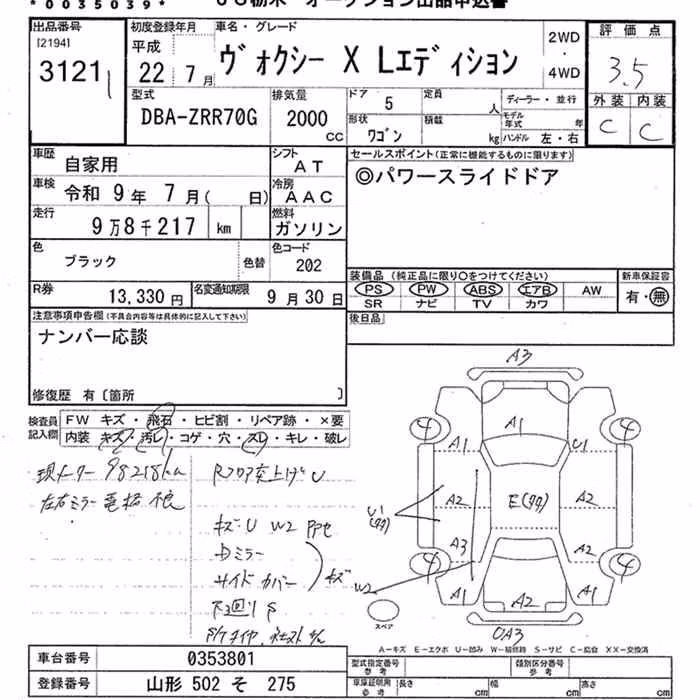 *0035039*
出品番号
[2194]
3121
初度登録年月
平成
22 7月
車名・グレード
ヴォクシー X Lエディション
2WD
・
4WD
評価点
3.5
外装 内装
C C
型式
DBA-ZRR70G
排気量
2000
CC
ドア 5
定員
人
形状
ワゴン
積載
kg
ディーラー・並行
モデル年式 年
ハンドル 左・右
車歴 自家用
シフト
AT
車検 令和 9年 7月( 日)
冷房
AAC
走行
9万8千217 km
燃料
ガソリン
色
ブラック
色替
色コード
202
R券
13,330円
名変通知期限
9月30日
セールスポイント(正常に機能するものに限ります)
◎パワースライドドア
装備品 (純正品に限り○をつけてください)
PS PW ABS エアB AW
SR ナビ TV カワ
新車保証書
有・無
後日品
注意事項申告欄(不具合内容等は具体的に記入して下さい)
ナンバー応談
修復歴 有〔箇所 〕
検査員
記入欄
FW キズ・飛石・ヒビ割・リペア跡・×要
内装 キズ・汚レ・コゲ・穴・スレ・キレ・破レ
現メーター 98218km
左右ミラー電格不良
Rフロア突上げU
キズ・U W2 PPセ
ドミラー
サイドカバー
キズ
下廻りS
A3
A1
4 4
A1 U1
A2 E(タタ) A2
U1
(タタ)
A3 A2
W2
4 4
A1 A2 A1
スペア
A3
A-キズ E-エクボ U-凹み W-補修跡 S-サビ C-腐食 XX-交換済
車台番号 0353801
登録番号 山形 502 そ 275
型式指定番号
参考
類別区分番号
参考
車庫証明用
参考
長さ cm
幅 cm
高さ cm